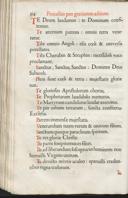 Te Deum laudamus: te Dominum confitemur.
Te æternum patrem: omnis terra veneratur.
Tibi omnes Angeli: tibi cœli & universæ potestates.
Tibi Cherubin & Seraphin: incessabili voce proclamant.
Sanctus, Sanctus, Sanctus: Dominus Deus Sabaoth.
Pleni sunt cœli & terra: majestatis gloriæ tuæ.
Te gloriosus Apostolorum chorus.
Te Prophetarum laudabilis numerus.
Te Martyrum candidatus laudat exercitus.
Te per orbem terrarum: sancta confitetur Ecclesia.
Patrem immensæ majestatis.
Venerandum tuum verum & unicum filium.
Sanctum quoque paraclitum spiritum.
Tu rex gloriæ Christe.
Tu patris sempiternus es filius.
Tu ad liberandum suscepturus hominem: non horruisti Virginis uterum.
Tu devicto mortis aculeo: aperuisti credentibus regna cœlorum.